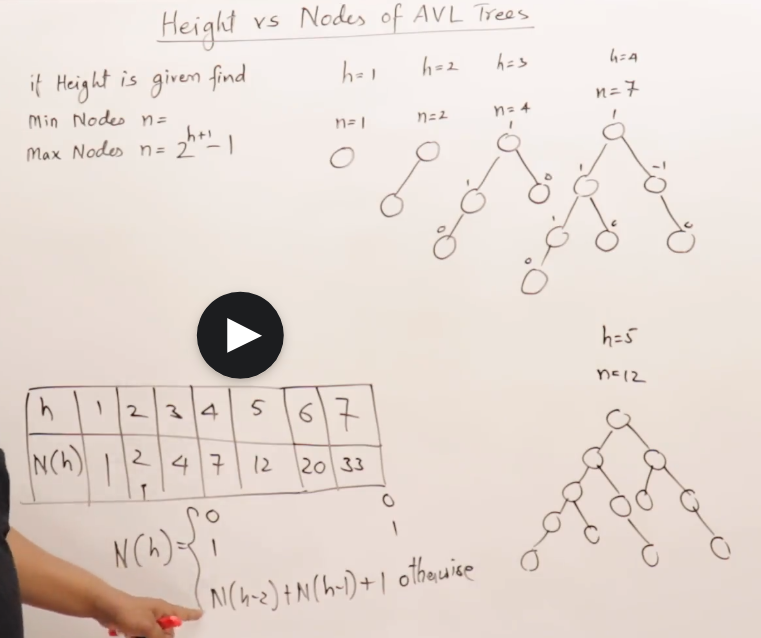 Height vs Nodes of AVL Trees
if Height is given find
Min Nodes n=
Max Nodes n= 2^(h+1) - 1
h=1 h=2 h=3 h=4
n=1 n=2 n=4 n=7
1 1
1 0 1 -1
0 1 0 0
0
h=5
n=12
h 1 2 3 4 5 6 7
N(h) 1 2 4 7 12 20 33
N(h)= { 0 0
1 1
N(h-2)+N(h-1)+1 otherwise